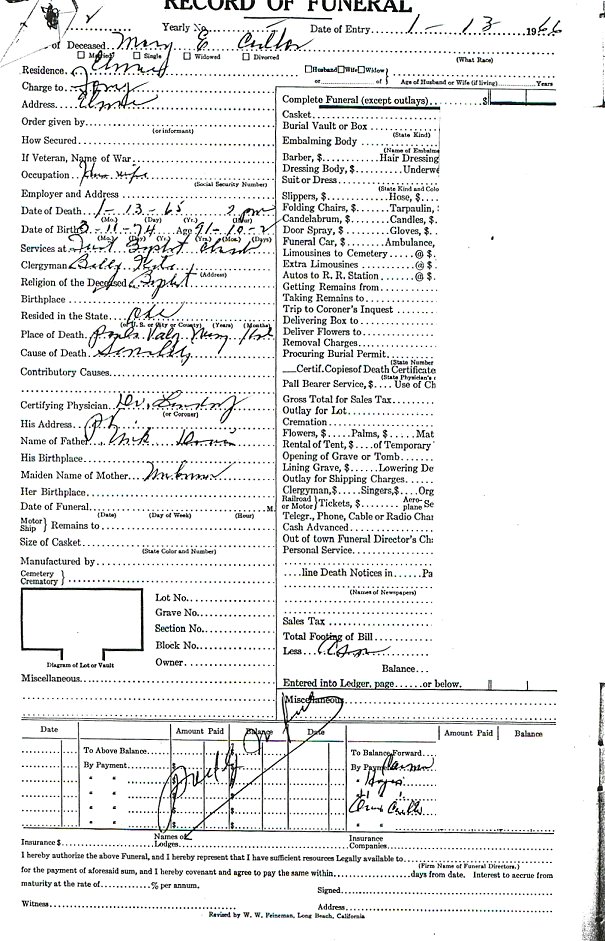 RECORD OF FUNERAL
Yearly No. Date of Entry 1 - 13 1966
of Deceased Mary E
Married Single Widowed Divorced (What Race)
Residence
Husband Wife Widow
or of Age of Husband or Wife (if living) Years
Charge to
Address
Order given by
(or informant)
How Secured
If Veteran, Name of War
Occupation
(Social Security Number)
Employer and Address
Date of Death 1 - 13 - 65 2 pm
(Mo.) (Day) (Yr.) (Hour)
Date of Birth 3 - 11 - 74 Age 91 - 10 - 2
(Mo.) (Day) (Yr.) (Yrs.) (Mos.) (Days)
Services at First Baptist Church
Clergyman Billy
(Address)
Religion of the Deceased Baptist
Birthplace
Resided in the State
(or U. S. or City or County) (Years) (Months)
Place of Death
Cause of Death Senility
Contributory Causes
Certifying Physician Dr.
(or Coroner)
His Address
Name of Father
His Birthplace
Maiden Name of Mother Unknown
Her Birthplace
Date of Funeral M.
(Date) (Day of Week) (Hour)
Motor Ship } Remains to
Size of Casket
(State Color and Number)
Manufactured by
Cemetery Crematory }
Lot No.
Grave No.
Section No.
Block No.
Owner
Diagram of Lot or Vault
Miscellaneous
Complete Funeral (except outlays) $
Casket
Burial Vault or Box
(State Kind)
Embalming Body
(Name of Embalme
Barber, $ Hair Dressing
Dressing Body, $ Underwe
Suit or Dress
(State Kind and Colo
Slippers, $ Hose, $
Folding Chairs, $ Tarpaulin,
Candelabrum, $ Candles, $
Door Spray, $ Gloves, $
Funeral Car, $ Ambulance,
Limousines to Cemetery @ $
Extra Limousines @ $
Autos to R. R. Station @ $
Getting Remains from
Taking Remains to
Trip to Coroner's Inquest
Delivering Box to
Deliver Flowers to
Removal Charges
Procuring Burial Permit
(State Number
Certif. Copies of Death Certificate
(State Physician's
Pall Bearer Service, $ Use of Ch
Gross Total for Sales Tax
Outlay for Lot
Cremation
Flowers, $ Palms, $ Mat
Rental of Tent, $ of Temporary
Opening of Grave or Tomb
Lining Grave, $ Lowering De
Outlay for Shipping Charges
Clergyman, $ Singers, $ Org
Railroad or Motor } Tickets, $ Aero-plane Se
Telegr., Phone, Cable or Radio Char
Cash Advanced
Out of town Funeral Director's Ch
Personal Service
line Death Notices in Pa
(Names of Newspapers)
Sales Tax
Total Footing of Bill
Less
Balance
Entered into Ledger, page or below.
Miscellaneous
Date Amount Paid Balance Date Amount Paid Balance
To Above Balance $ To Balance Forward
By Payment $ By Payment
" " $ " "
" " $ " "
" " $ " "
Insurance $ Names of Lodges Insurance Companies
I hereby authorize the above Funeral, and I hereby represent that I have sufficient resources Legally available to
(Firm Name of Funeral Directors.)
for the payment of aforesaid sum, and I hereby covenant and agree to pay the same within days from date. Interest to accrue from
maturity at the rate of % per annum. Signed
Witness Address
Revised by W. W. Feineman, Long Beach, California